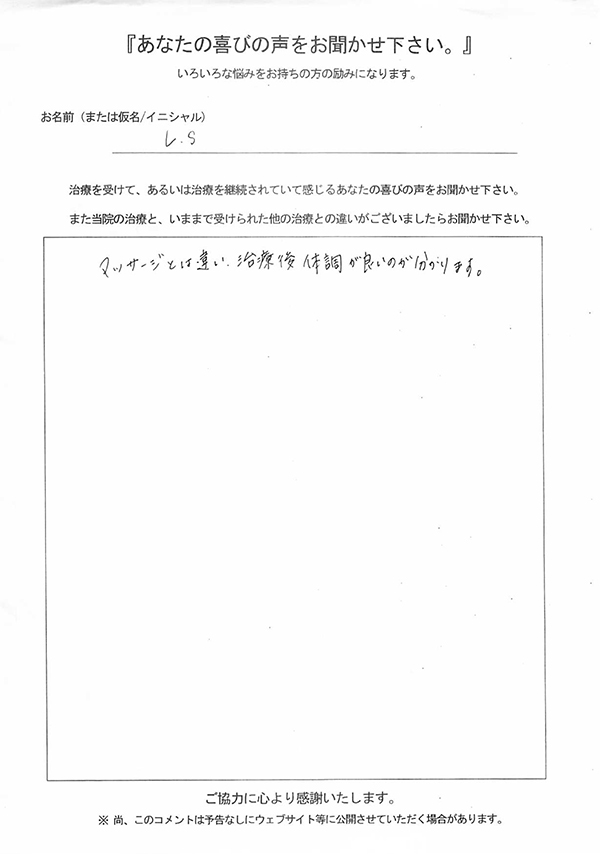 『あなたの喜びの声をお聞かせ下さい。』
いろいろな悩みをお持ちの方の励みになります。
お名前（または仮名/イニシャル）
L.S
治療を受けて、あるいは治療を継続されていて感じるあなたの喜びの声をお聞かせ下さい。
また当院の治療と、いままで受けられた他の治療との違いがございましたらお聞かせ下さい。
マッサージとは違い、治療後体調が良いのが分かります。
ご協力に心より感謝いたします。
※ 尚、このコメントは予告なしにウェブサイト等に公開させていただく場合があります。